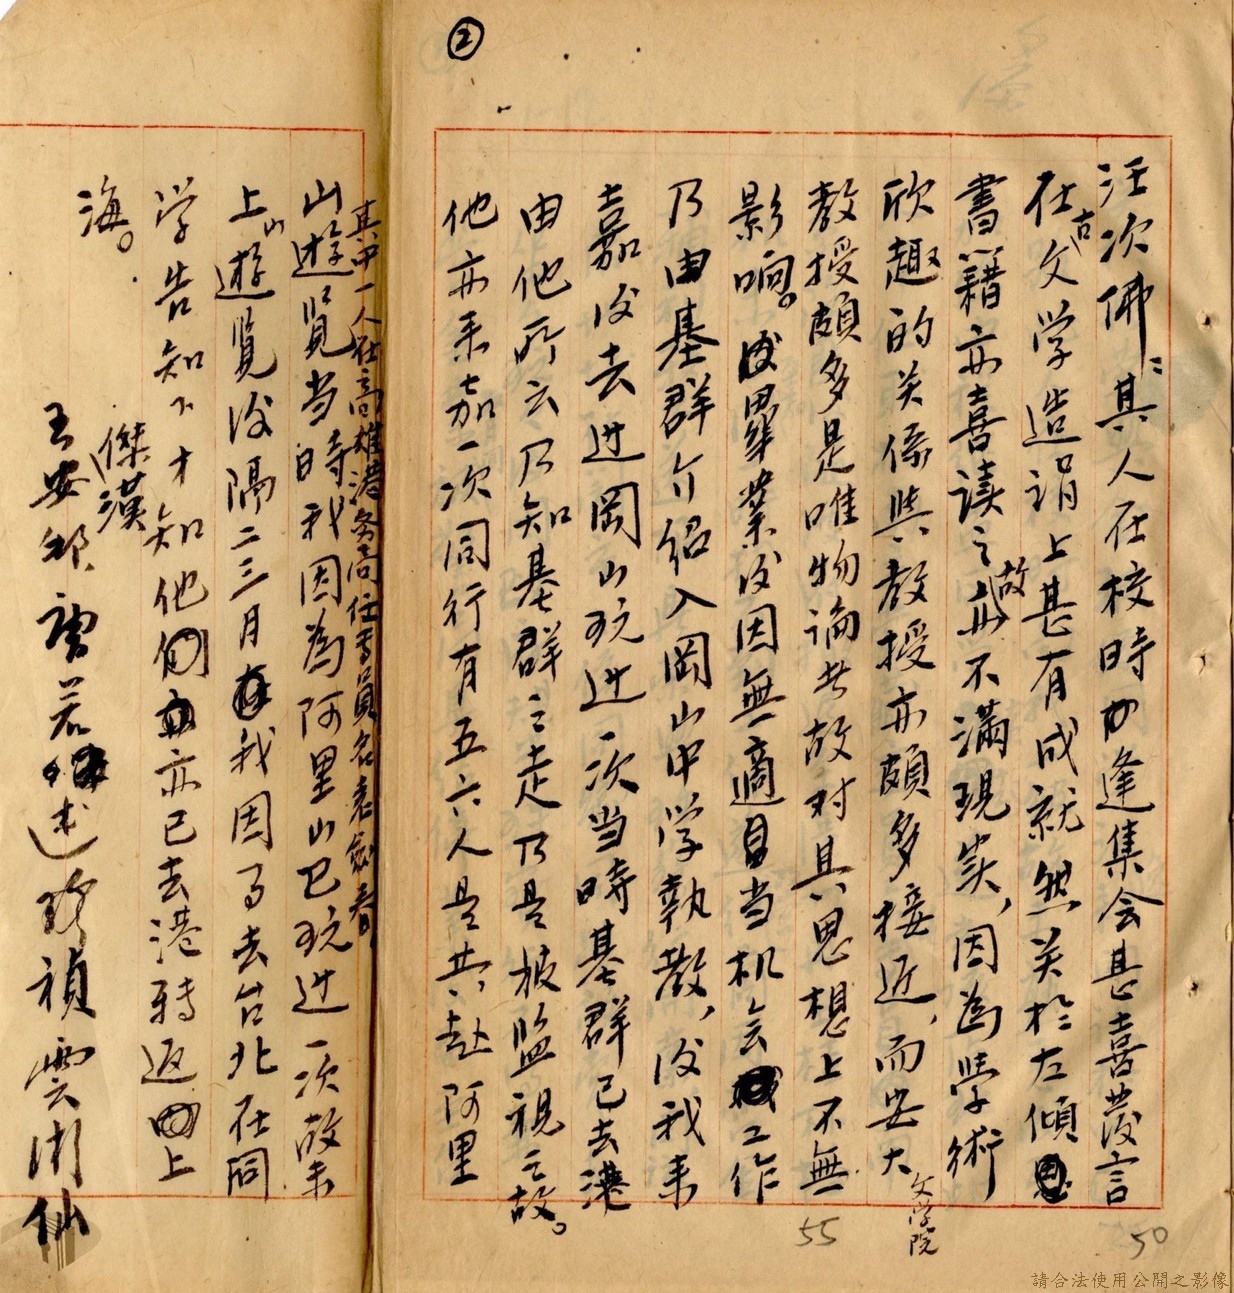 ②
汪次佛：其人在校時力逢集会甚喜發言
在古文学造詣上甚有成就然关於左傾
書籍亦喜读之故不滿現实，因為学術
欣趣的关係與教授亦頗多接近，而安大文学院
教授頗多是唯物論者故对其思想上不無
影响。後畢業後因無適当机会工作
乃由基群介紹入岡山中学執教，後我来
嘉後去过岡山玩过一次当時基群已去港
由他所云乃知基群之走乃是被监視之故。
他亦来嘉一次同行有五六人是共赴阿里
其中一人在高雄港务局任書員名袁剑春
山遊览当時我因為阿里山已玩过一次故未
上山遊覧後隔二三月我因事去台北在同
学告知下才知他們亦已去港轉返上
海。
傑漢
50
55
請合法使用公開之影像